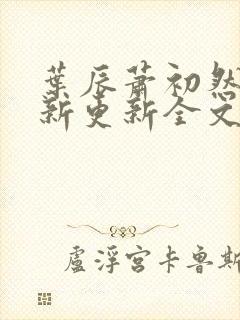 葉辰蕭初然
新更新全文
盧浮宮卡魯斯